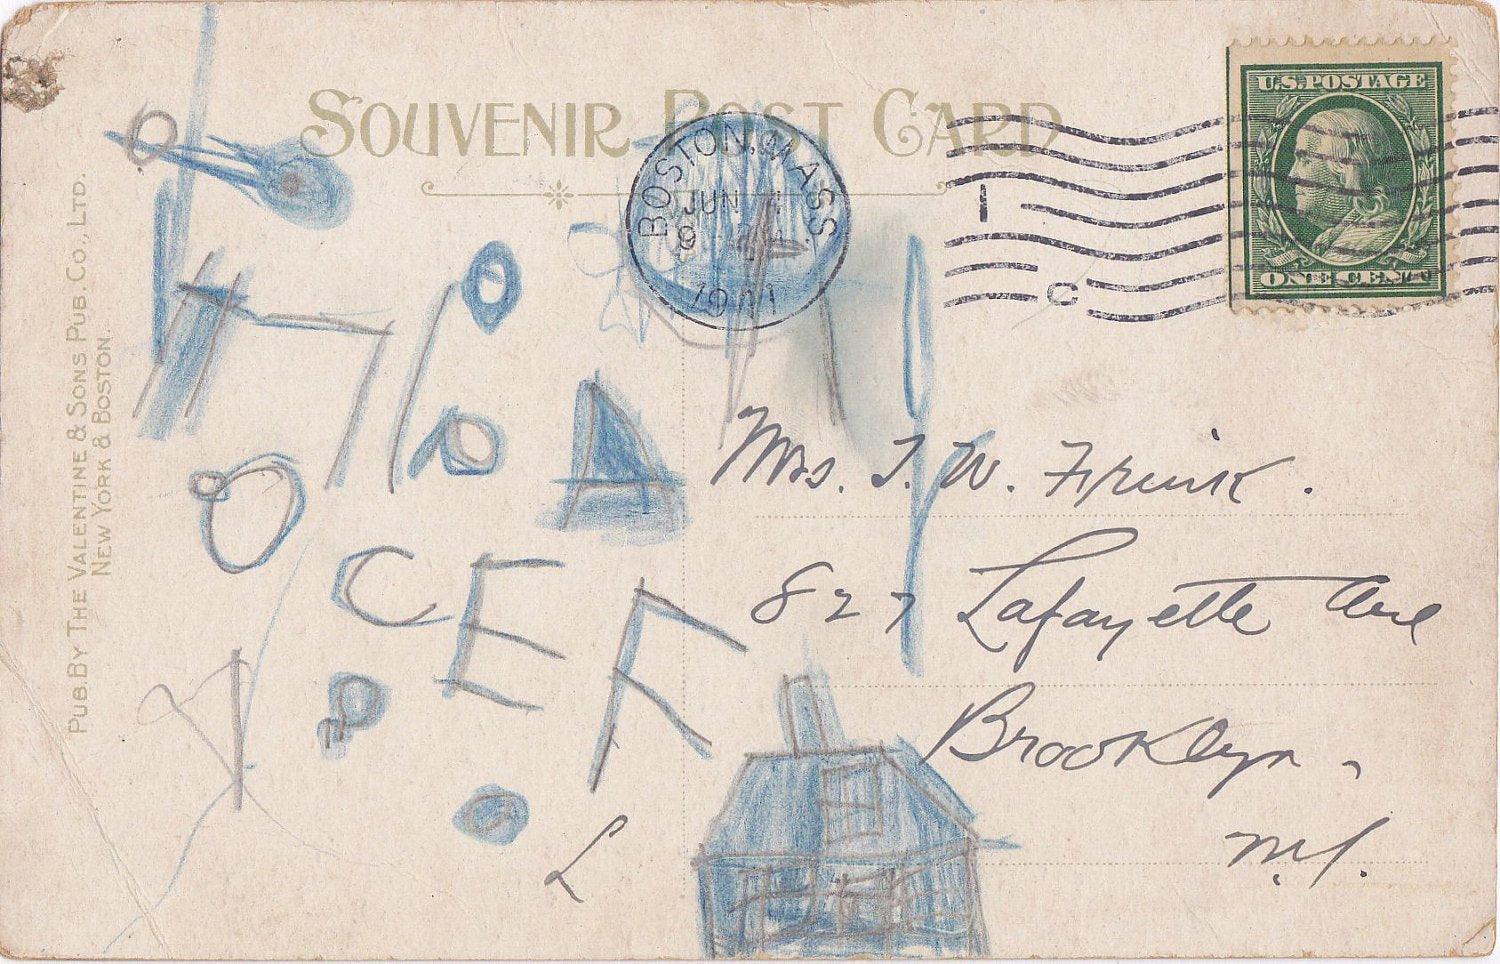 SOUVENIR POST CARD
U.S. POSTAGE
ONE CENT
BOSTON, MASS.
JUN
1911
1
C
PUB. BY THE VALENTINE & SONS PUB. CO., LTD.
NEW YORK & BOSTON.
Mrs. J. W. Frink.
827 Lafayette Ave
Brooklyn.
N.Y.
A
O
C E F
L